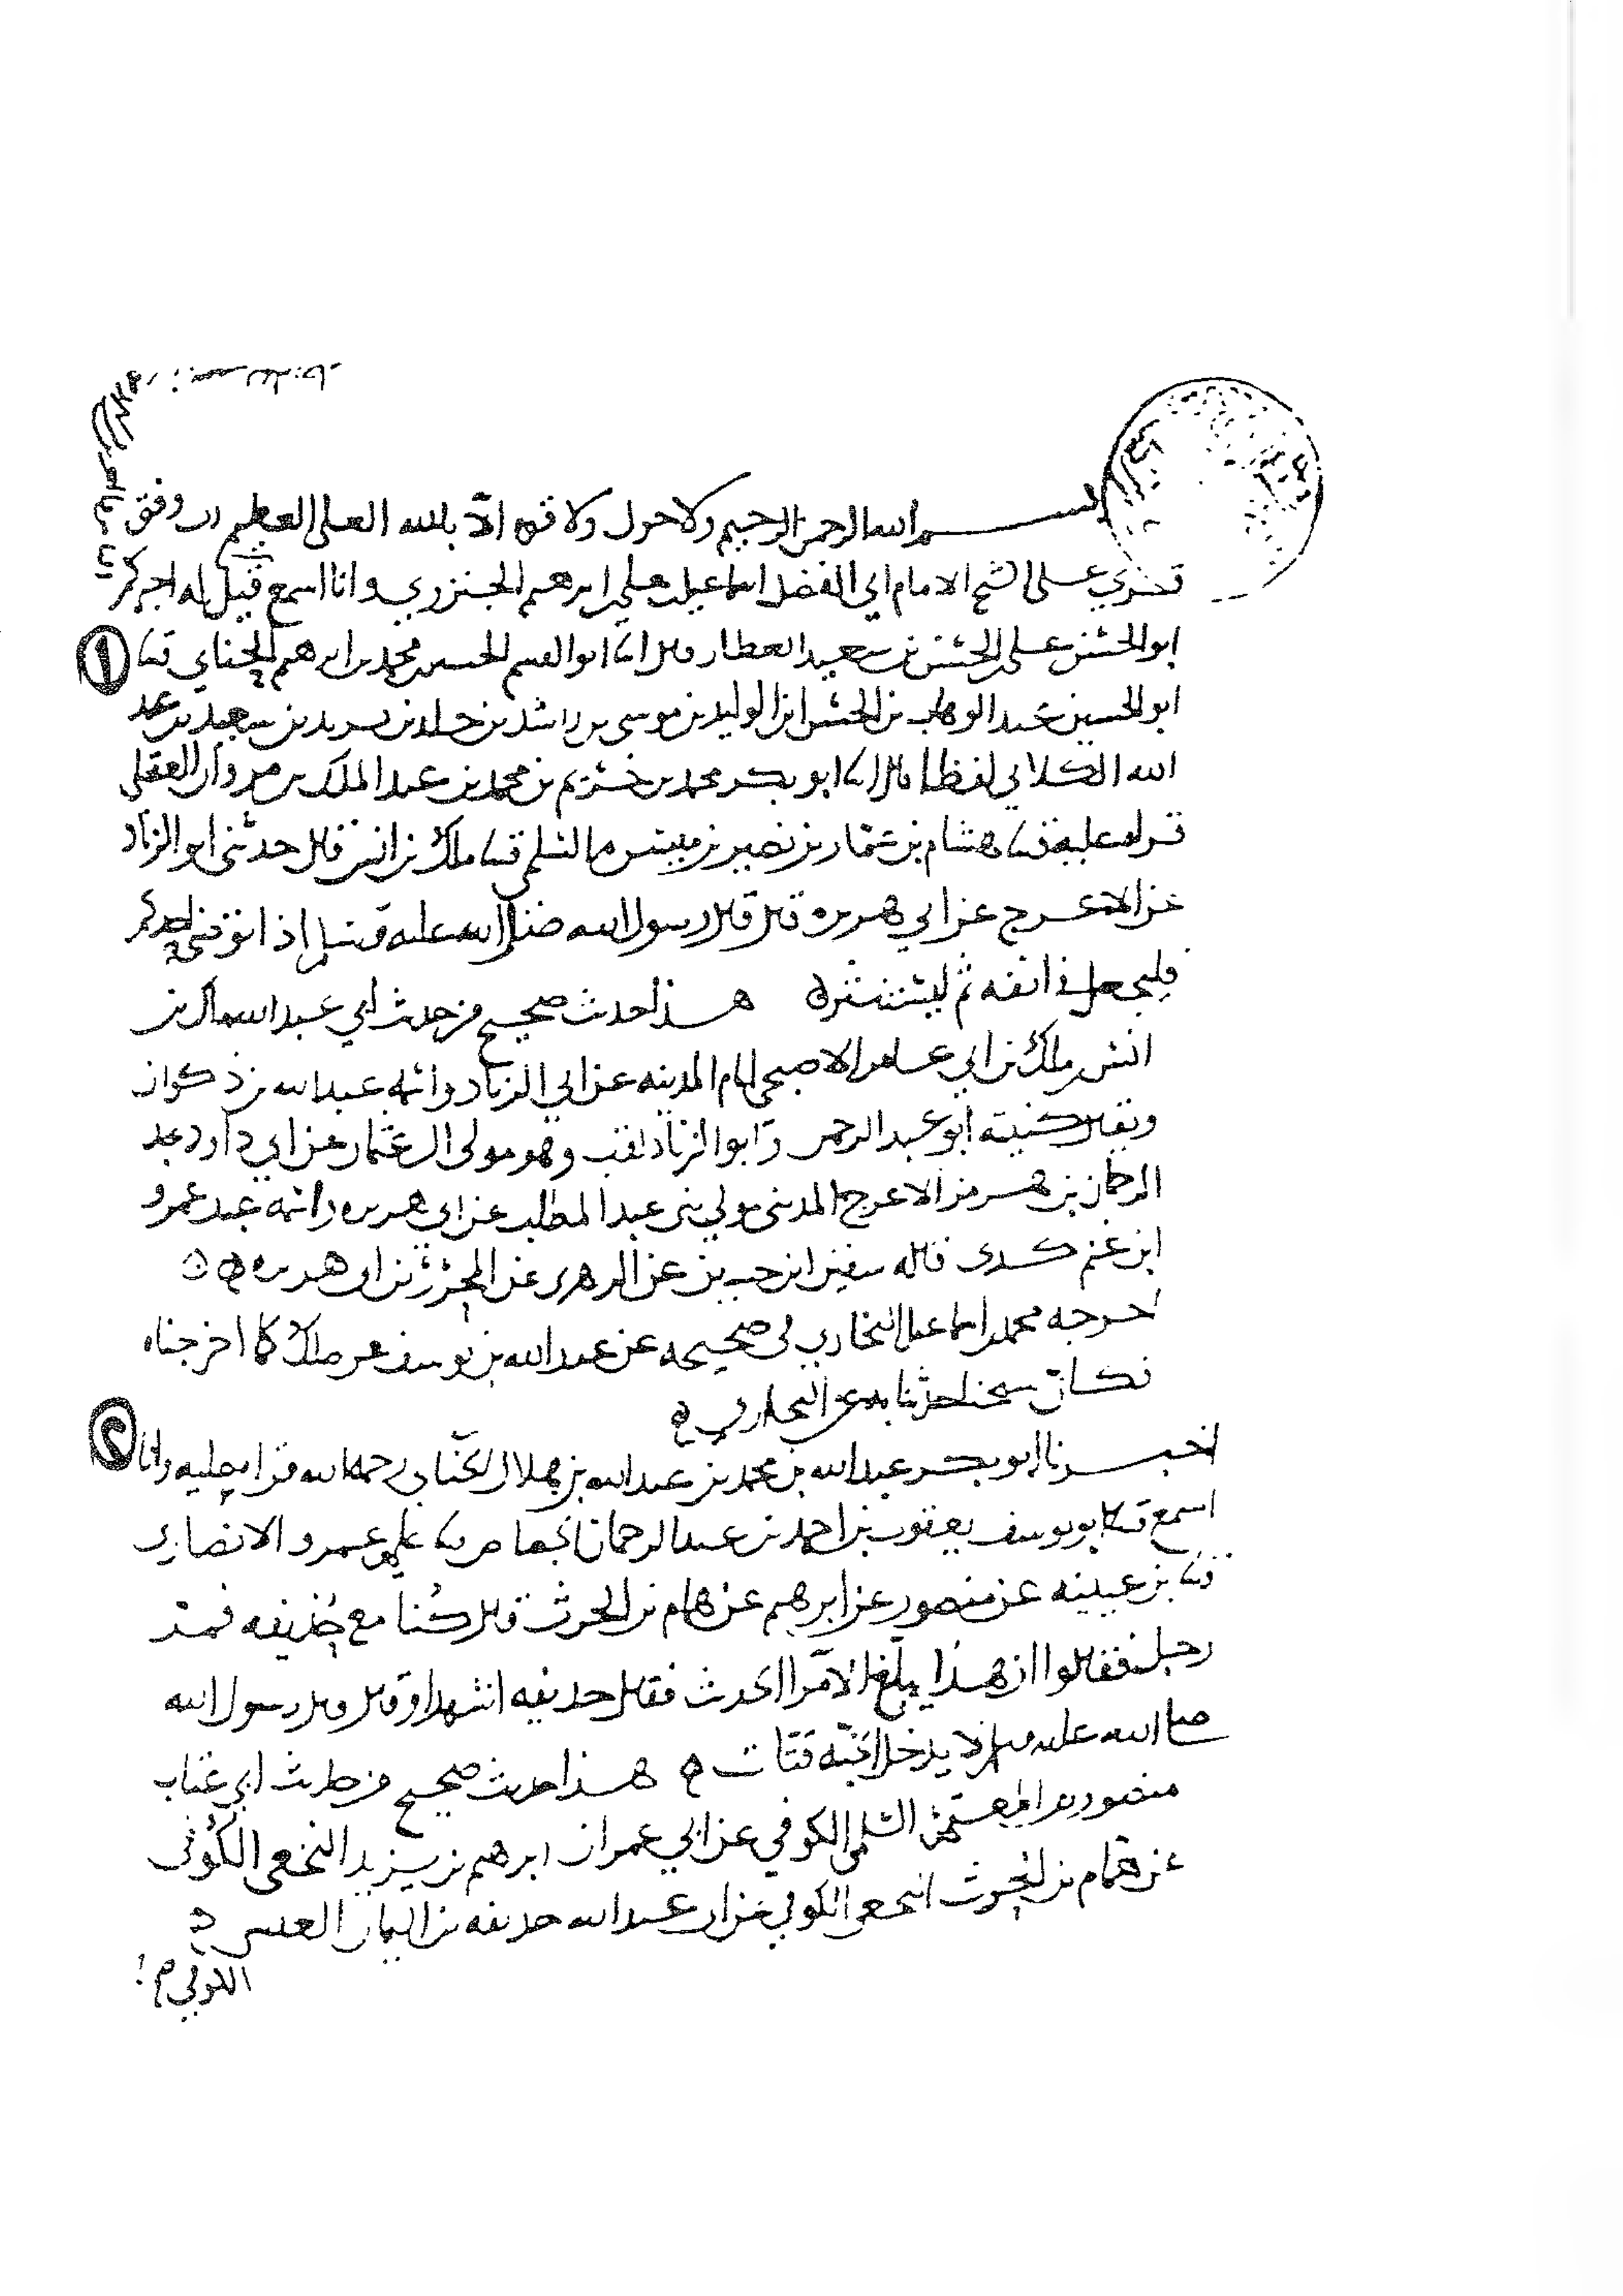 بسم الله الرحمن الرحيم ولا حول ولا قوه الا بالله العلي العظيم رب وفق
قرى على الشيخ الامام ابي الفضل اسماعيل بن علي بن ابرهيم الجنزوي وانا اسمع قيل له اخبركم
ابو الحسن علي بن الحسن بن سعيد العطار قال انا ابو القسم الحسين بن محمد بن ابرهيم الحنايي قثنا
ابو الحسين عبد الوهاب بن الحسن ابن الوليد بن موسى بن راشد بن خالد بن يزيد بن سعيد بن عبد
الله الكلابي لفظا قال انا ابو بكر محمد بن خريم بن محمد بن عبد الملك بن مروان العقيلي
قراه عليه قثنا هشام بن عمار بن نصير بن ميسره السلمي قثنا ملك بن انس قال حدثني ابو الزناد
عن الاعرج عن ابي هريره قال قال رسول الله صلى الله عليه وسلم اذا توضى احدكم
فليجعل في انفه ثم ليستنثر ه هذا حديث صحيح من حديث ابي عبد الله مالك بن
انس بن ملك بن ابي عامر الاصبحي امام المدينه عن ابي الزناد واسمه عبد الله بن ذكوان
ويقال كنيته ابو عبد الرحمن وابو الزناد لقب وهو مولى ال عثمان عن ابي داود عبد
الرحمان بن هرمز الاعرج المدني مولي بني عبد المطلب عن ابي هريره واسمه عبد عمرو
ابن غنم كذى قاله سفين ابن حسين عن الزهري عن المحرر بن ابي هريره ه
اخرجه محمد بن اسماعيل البخاري في صحيحه عن عبد الله بن يوسف عن ملك كما اخرجناه
فكان شيخنا حدثنا به عن البخاري ه
اخبرنا ابو بكر عبد الله بن محمد بن عبد الله بن هلال الحنايي رحمه الله قراه عليه وانا
اسمع قثنا ابو يوسف يعقوب بن احمد بن عبد الرحمان الجصاص ثنا علي بن عمرو الانصاري
قثنا بن عيينه عن منصور عن ابرهيم عن همام بن الحرث قال كنا مع حذيفه فمر
رجل فقالوا ان هذا يبلغ الامرا الحديث فقال حذيفه اشهد او قال قال رسول الله
صلى الله عليه وسلم لا يدخل الجنه قتات ه هذا حديث صحيح من حديث ابي عتاب
منصور بن المعتمر السلمي الكوفي عن ابي عمران ابرهيم بن يزيد النخعي الكوفي
عن همام بن الحرث النخعي الكوفي عن ابي عبد الله حذيفه بن اليمان العبسي ه
الكوفي